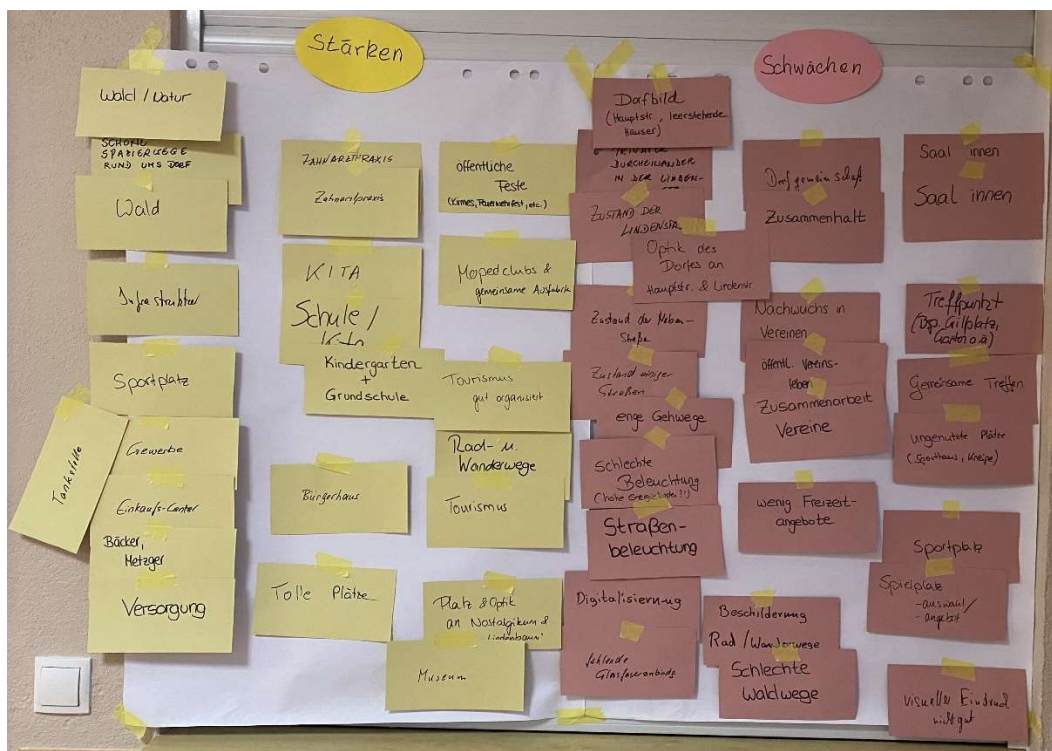 Stärken
Wald / Natur
SPAZIERWEGE
RUND UMS DORF
Wald
Infrastruktur
Sportplatz
Tankstelle
Gewerbe
Einkaufs-Center
Bäcker,
Metzger
Versorgung
ZAHNARZTPRAXIS
Zahnarztpraxis
KITA
Schule /
Kita
Kindergarten
+
Grundschule
Bürgerhaus
Tolle Plätze
öffentliche
Feste
(Kirmes, Feuerwehrfest, etc.)
Mopedclubs &
gemeinsame Ausfahrten
Tourismus
gut organisiert
Rad- u.
Wanderwege
Tourismus
Platz & Optik
an Nostalgikum &
Museum
Schwächen
Dorfbild
(Hauptstr., leerstehende
Häuser)
IN DER LINDEN-
ZUSTAND DER
LINDENSTR.
Optik des
Dorfes an
Hauptstr. & Lindenstr.
Zustand der Neben-
Straße
Zustand einiger
Straßen
enge Gehwege
Schlechte
Beleuchtung
Straßen-
beleuchtung
Digitalisierung
fehlende
Dorfgemeinschaft
Zusammenhalt
Nachwuchs in
Vereinen
öffentl. Vereins-
leben
Zusammenarbeit
Vereine
wenig Freizeit-
angebote
Beschilderung
Rad / Wanderwege
Schlechte
Waldwege
Saal innen
Saal innen
Treffpunkt
(Bsp. Grillplatz,
Gemeinsame Treffen
ungenutzte Plätze
(Sporthaus, Kneipe)
Sportplatz
Spielplatz
-auswahl/
-angebot
visueller Eindruck
nicht gut